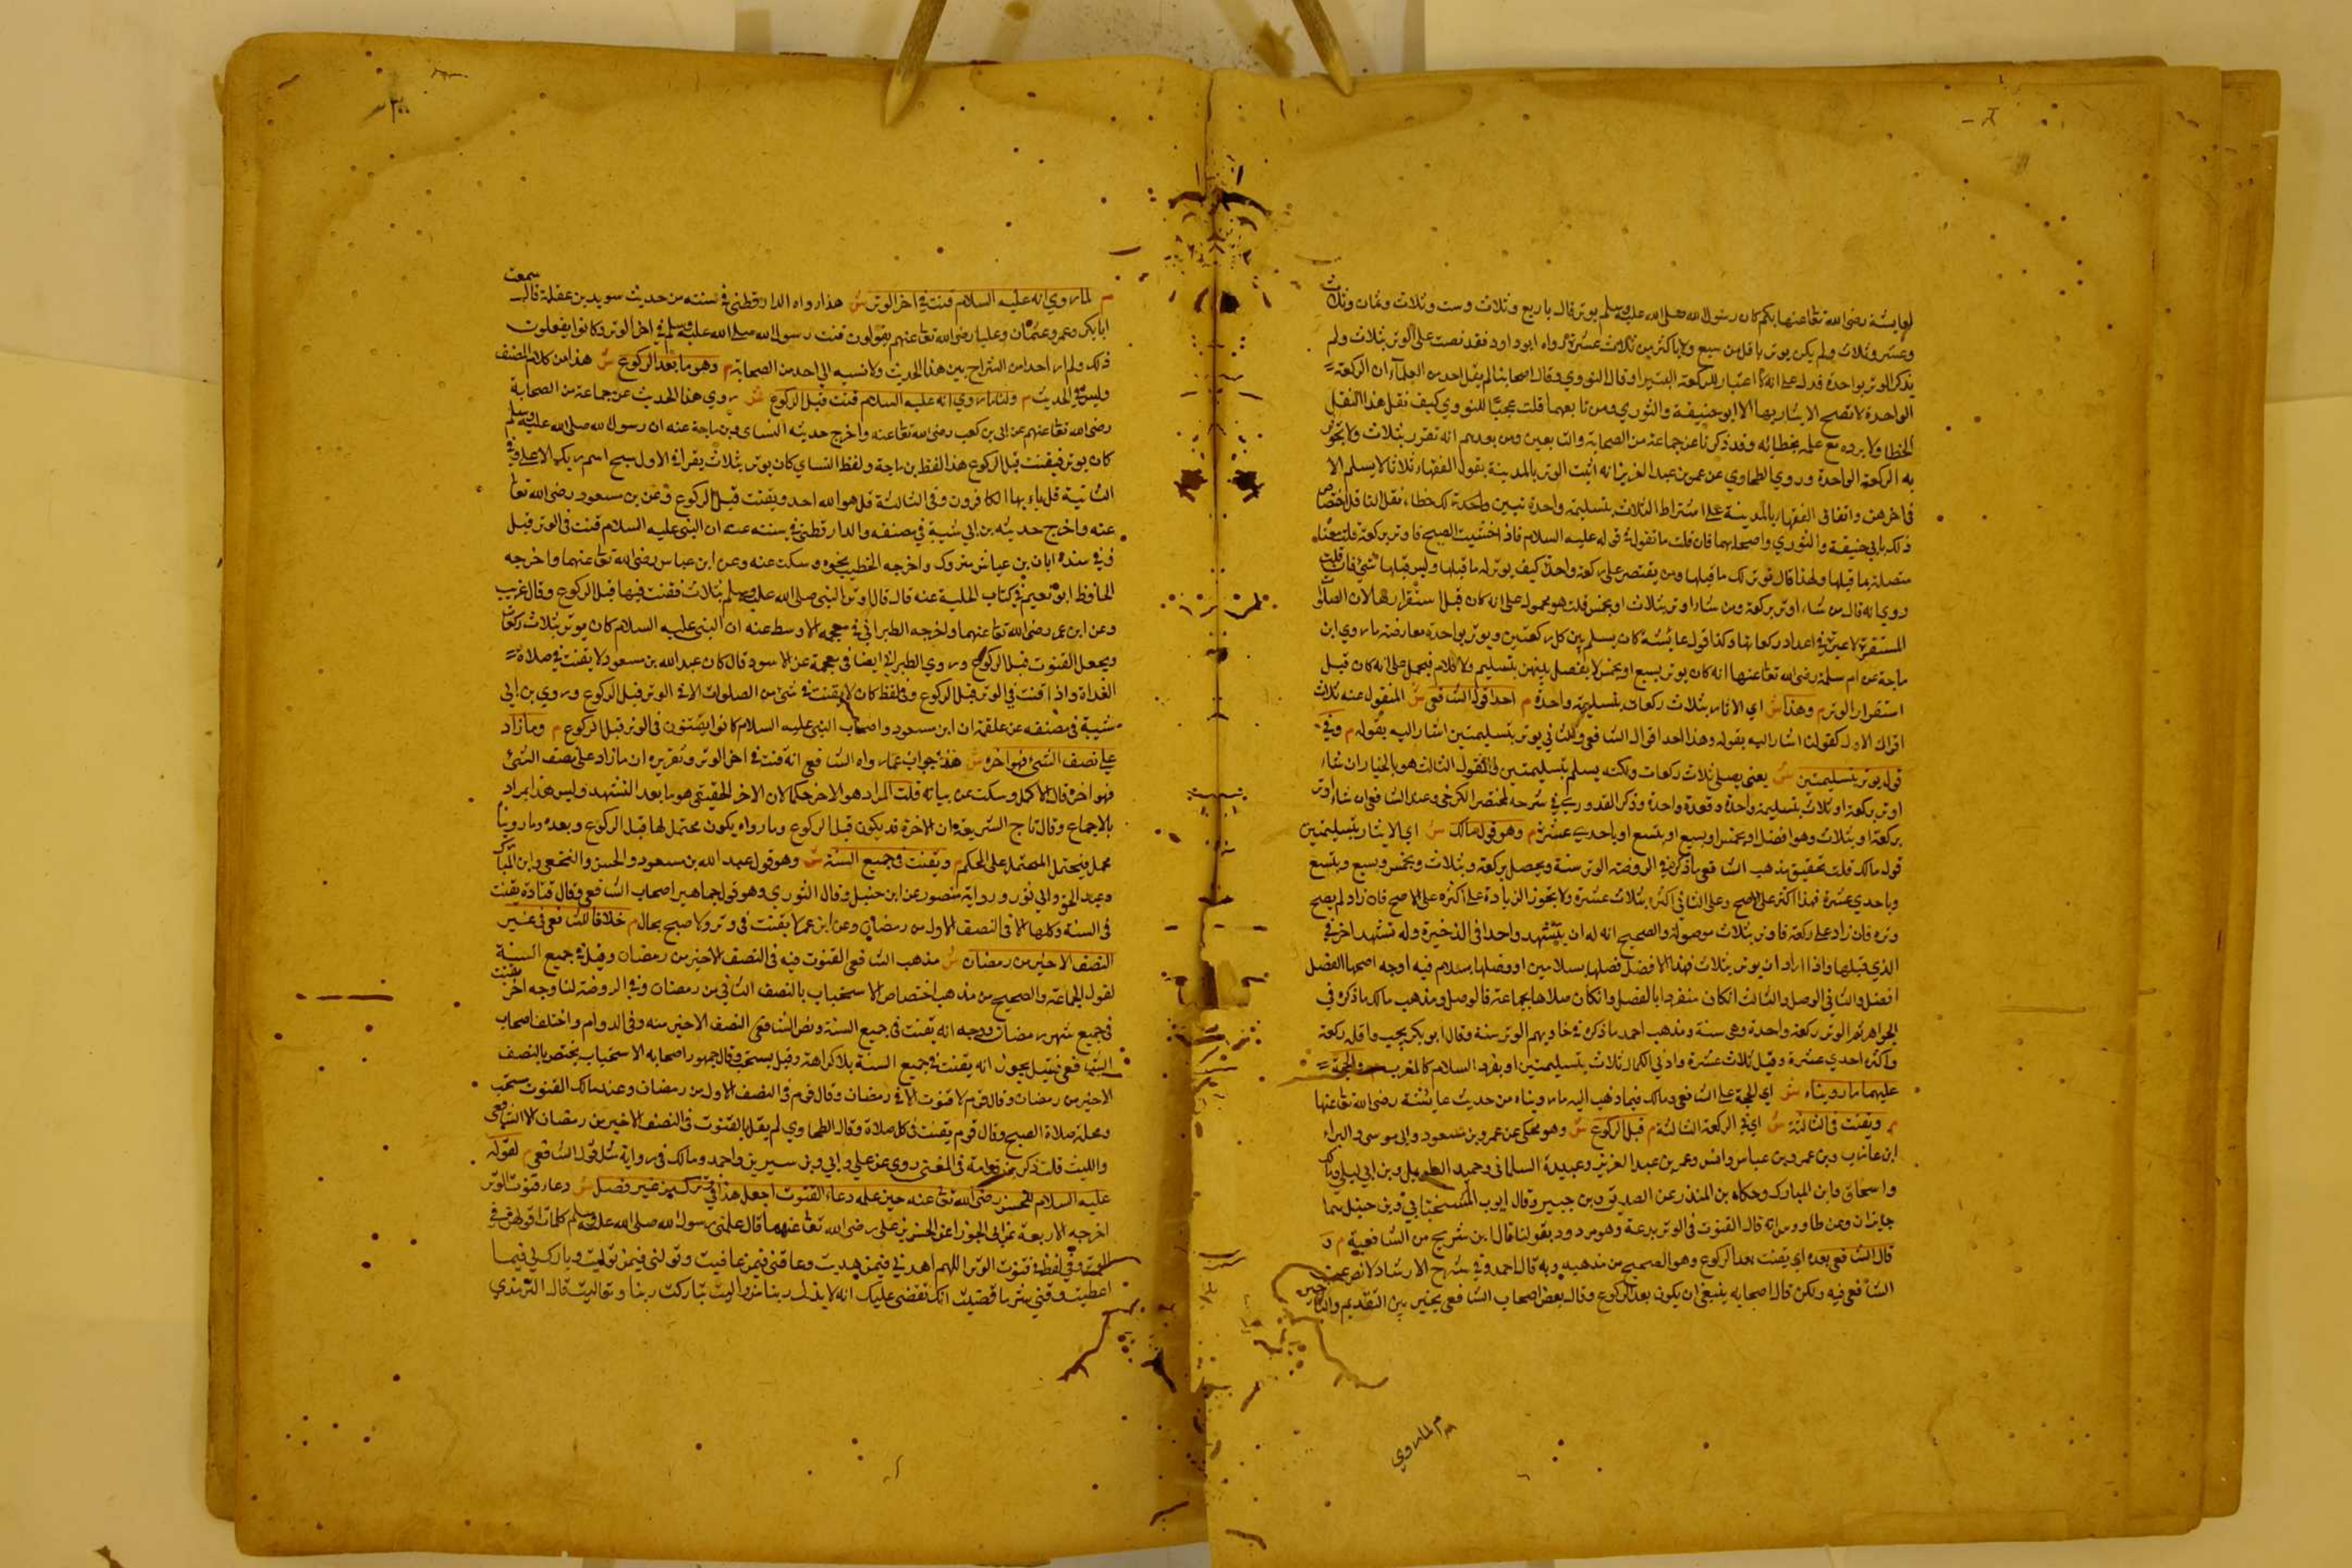 لعايشة رضى الله تعا عنها بكم كان رسول الله صلى الله عليه وسلم يوتر قال باربع وثلاث وست وثلاث وثمان وثلاث
وعشر وثلاث ولم يكن يوتر باقل من سبع ولا باكثر من ثلاث عشرة رواه ابو داود فقد نصت على الوتر بثلاث ولم
يذكر الوتر بواحدة فدل على انه لا اعتبار للركعة البتيرا وقال النووي وقال اصحابنا لم يقل احد من العلماء ان الركعة
الواحدة لا تصح الايتار بها الا ابو حنيفة والثوري ومن تابعهما قلت عجبا للنووي كيف نقل هذا النقل
الخطا ولا يرده مع علمه بخطائه وقد ذكرنا عن جماعة من الصحابة والتابعين ومن بعدهم انه تقرر بثلاث ولا تجوز
به الركعة الواحدة وروي الطحاوي عن عمر بن عبد العزيز انه اثبت الوتر بالمدينة بقول الفقهاء ثلاثا لا يسلم الا
في اخرهن واتفاق الفقهاء بالمدينة على اشتراط الثلاث بتسليمة واحدة تبين واحدة لك خطاء نقل الناقل اختصاص
ذلك بابي حنيفة والثوري واصحابهما فان قلت ما تقول في قوله عليه السلام فاذا خشيت الصبح فاوتر بركعة قلت معناه
متصلة بما قبلها ولهذا قال توتر لك ما قبلها ومن يقتصر على ركعة واحدة كيف يوتر له ما قبلها وليس قبلها شئ فان قلت
روي انه قال من شاء اوتر بركعة ومن شاء اوتر بثلاث او بخمس قلت هو محمول على انه كان قبل استقرارها لان الصلوة
المستقرة لا عبرة في اعداد ركعاتها وكذا قول عائشة كان يسلم بين كل ركعتين ويوتر بواحدة معارضة ما روي ابن
ماجة عن ام سلمة رضى الله تعا عنها انه كان يوتر بسبع او بخمس لا يفصل بينهن بتسليم ولا كلام فيحمل على انه كان قبل
استقرار الوتر م وهذا ش اي الايتار بثلاث ركعات بتسليمة واحدة م احد اقوال الشافعي ش المنقول عنه ثلاث
اقوال الاول كقولنا اشار اليه بقوله وهذا احد اقوال الشافعي والثاني يوتر بتسليمتين اشار اليه بقوله م وفي
قول يوتر بتسليمتين ش يعني يصلي ثلاث ركعات ولكنه يسلم بتسليمتين القول الثالث هو بالخيار ان شاء
اوتر بركعة او ثلاث بتسليمة واحدة وقعدة واحدة وذكر القدوري في شرحه لمختصر الكرخي وعند الشافعي ان شاء اوتر
بركعة او بثلاث وهو افضل او بخمس او بسبع او بتسع او باحدى عشرة م وهو قول مالك ش اي الايتار بتسليمتين
قول مالك قلت تحقيق مذهب الشافعي ما ذكر في الروضة الوتر سنة ويحصل بركعة وبثلاث وبخمس وبسبع وبتسع
وباحدي عشرة فهذا اكثر على الاصح وعلى الثاني اكثره بثلاث عشرة ولا تجوز الزيادة على اكثره على الاصح فان زاد لم يصح
وتره فان زاد على ركعة فاوتر بثلاث موصولة والصحيح انه له ان يتشهد واحدا في الاخيرة وله تشهد اخر في
الذي قبلها واذا اراد ان يوتر بثلاث فهذا الافضل فصلها بسلامين او وصلها بسلام فيه اوجه اصحها الفصل
افضل والثاني الوصل والثالث ان كان منفردا بالفصل وان كان صلاها بجماعة فالوصل ومذهب مالك ما ذكره في
الجواهر ثم الوتر ركعة واحدة وهي سنة ومذهب احمد ما ذكره في حاويهم الوتر سنة وقال ابو بكر يجب واقله ركعة
واكثره احدي عشرة وقيل ثلاث عشرة وادني الكمال ثلاث بتسليمتين او بفرد السلام كالمغرب م والحجة
عليهما ما رويناه ش اي الحجة على الشافعي ومالك فيما ذهب اليه ما رويناه من حديث عايشة رضى الله تعا عنها
م ويقنت في الثالثة ش اي في الركعة الثالثة م قبل الركوع ش وهو محكي عن عمر وبن مسعود وابي موسى والبراء
ابن عازب وبن عمر وبن عباس وانس وعمر بن عبد العزيز وعبيدة السلماني وحميد الطويل وبن ابي ليلي ومالك
واسحاق وابن المبارك وحكاه بن المنذر عن الصديق وبن جبير وقال ايوب السختياني وبن حنبل هما
جايزان وعن طاووس انه قال القنوت في الوتر بدعة وهو مردود بقولنا قال ابن شريح من الشافعية م و
قال الشافعي بعده اي يقنت بعد الركوع وهو الصحيح من مذهبه وبه قال احمد وفي شرح الارشاد لا نص عن
الشافعي فيه ولكن قال اصحابه ينبغي ان يكون بعد الركوع وقال بعض اصحاب الشافعي يخير بين التقديم والتاخير
م لما روي
م لما روي انه عليه السلام قنت في اخر الوتر ش هذا رواه الدارقطني في سننه من حديث سويد بن غفلة قال سمعت
ابا بكر وعمر وعثمان وعليا رضى الله تعا عنهم يقولون قنت رسول الله صلى الله عليه وسلم في اخر الوتر وكانوا يفعلون
ذلك ولم ار احدا من الشراح بين هذا الحديث ولا نسبه الى احد من الصحابة م وهو ما بعد الركوع ش هذا من كلام المصنف
وليس في الحديث م ولنا ما روي انه عليه السلام قنت قبل الركوع ش روي هذا الحديث عن جماعة من الصحابة
رضى الله تعا عنهم عن ابى بن كعب رضى الله تعا عنه واخرج حديثه النساى وبن ماجة عنه ان رسول الله صلى الله عليه وسلم
كان يوتر فيقنت قبل الركوع هذا لفظ بن ماجة ولفظ النساي كان يوتر بثلاث يقرا في الاول سبح اسم ربك الاعلى وفي
الثانية قل يا ايها الكافرون وفي الثالثة قل هو الله احد ويقنت قبل الركوع وعن بن مسعود رضى الله تعا
عنه واخرج حديثه بن ابي شيبة في مصنفه والدارقطني في سننه عنه ان النبي عليه السلام قنت في الوتر قبل
وفي سنده ابان بن عياش متروك واخرجه الخطيب بنحوه وسكت عنه وعن ابن عباس رضى الله تعا عنهما واخرجه
الحافظ ابو نعيم في كتاب الحلية عنه قال قال اوتر النبي صلى الله عليه وسلم بثلاث فقنت فيها قبل الركوع وقال غريب
وعن ابن عمر رضى الله تعا عنهما واخرجه الطبراني في معجمه الاوسط عنه ان النبي عليه السلام كان يوتر بثلاث ركعات
ويجعل القنوت قبل الركوع وروي الطبراني ايضا في معجمه عن الاسود قال كان عبد الله بن مسعود لا يقنت في صلاة
الغداة واذا قنت في الوتر قبل الركوع وفي لفظ كان لا يقنت في شئ من الصلوات الا في الوتر قبل الركوع وروي بن ابي
شيبة في مصنفه عن علقة ان ابن مسعود واصحاب النبي عليه السلام كانوا يقنتون في الوتر قبل الركوع م وما زاد
على نصف الشئ فهو اخره ش هذا جواب عما رواه الشافعي انه قنت في اخر الوتر وتقريره ان ما زاد على نصف الشئ
فهو اخره قال الاكمل وسكت عن بيانه قلت المراد هو الاخر حكما لان الاخر الحقيقي هو ما بعد التشهد وليس هذا بمراد
بالاجماع وقال تاج الشريعة وان الاخرة قد يكون قبل الركوع وما رواه يكون محتمل لها قبل الركوع وبعده وما روينا
محمل فيحتمل المحتمل على المحكم م ويقنت في جميع السنة ش وهو قول عبد الله بن مسعود والحسن والنخعي وابن المبارك
وعبد الحق وابي ثور ورواية منصور عن ابن حنبل وقال الثوري وهو قول جماهير اصحاب الشافعي وقال قتادة يقنت
في السنة وكلها الا في النصف الاول من رمضان وعن ابن عمر لا يقنت في وتر ولا صبح بحال م خلافا للشافعي في غير
النصف الاخير من رمضان ش مذهب الشافعي القنوت فيه في النصف الاخير من رمضان وقيل في جميع السنة
لقول الجماعة والصحيح من مذهب اختصاص الاستحباب بالنصف الثاني من رمضان وفي الروضة لنا وجه اخر يقنت
في جميع شهر رمضان ووجه انه يقنت في جميع السنة ونص الشافعي النصف الاخير منه وفي الدوام واختلف اصحاب
الشافعي فقيل يجوز انه يقنت في جميع السنة بلا كراهة وقيل يستحب وقال جمهور اصحابه الاستحباب يختص بالنصف
الاخير من رمضان وقال قوم لا قنوت الا في رمضان وقال قوم في النصف الاول من رمضان وعند مالك القنوت مستحب
ومحله صلاة الصبح وقال قوم يقنت في كل صلاة وقال الطحاوي لم يقل بالقنوت في النصف الاخير من رمضان الا الشافعي
والليث قلت ذكر بن قدامة في المغني روي عن علي وابي وبن سيرين واحمد ومالك في رواية مثل قول الشافعي م لقوله
عليه السلام للحسن رضى الله تعا عنه حين علمه دعاء القنوت اجعل هذا في وترك من غير فصل ش دعاء قنوت الوتر
اخرجه الاربعة عن ابى الجوزا عن الحسن بن علي رضى الله تعا عنهما قال علمني رسول الله صلى الله عليه وسلم كلمات اقولهن في
الوتر وفي لفظ في قنوت الوتر اللهم اهدني فيمن هديت وعافني فيمن عافيت وتولني فيمن توليت وبارك لي فيما
اعطيت وقني شر ما قضيت انك تقضي عليك انه لا يذل من واليت تباركت ربنا وتعاليت قال الترمذي